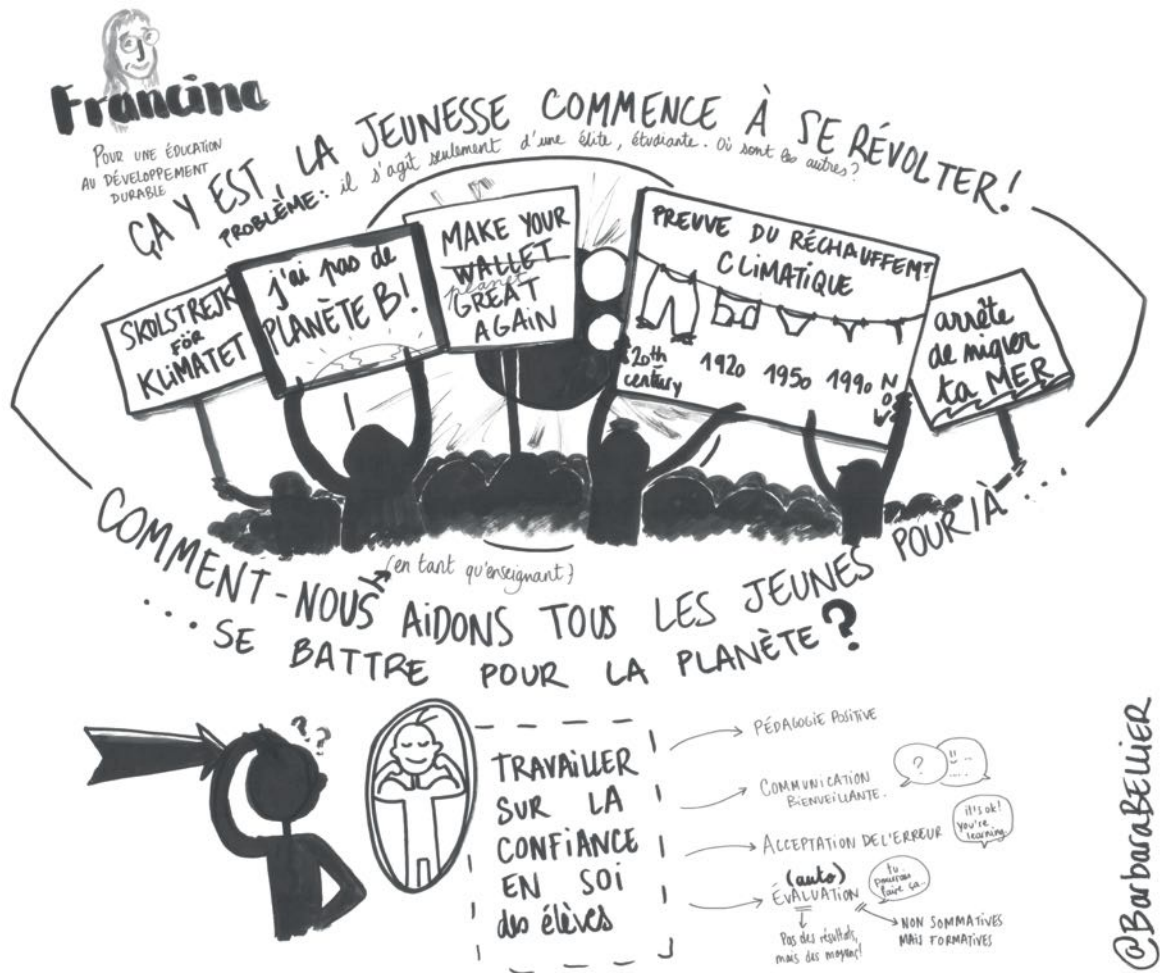 Francine
POUR UNE ÉDUCATION
AU DÉVELOPPEMENT
DURABLE
ÇA Y EST, LA JEUNESSE COMMENCE À SE RÉVOLTER!
PROBLÈME: il s'agit seulement d'une élite, étudiante. Où sont les autres?
SKOLSTREJK
FÖR
KLIMATET
j'ai pas de
PLANÈTE B!
MAKE YOUR
WALLET
planet
GREAT
AGAIN
PREUVE DU RÉCHAUFFEMT
CLIMATIQUE
20th
century
1920
1950
1990
NOW
arrête
de niquer
ta MER
COMMENT-NOUS AIDONS TOUS LES JEUNES POUR/À...
(en tant qu'enseignant)
...SE BATTRE POUR LA PLANÈTE?
???
TRAVAILLER
SUR LA
CONFIANCE
EN SOI
des élèves
PÉDAGOGIE POSITIVE
COMMUNICATION
BIENVEILLANTE.
?
!!
....
ACCEPTATION DE L'ERREUR
it's ok!
you're
learning
(auto)
ÉVALUATION
tu
pourras
faire ça..
Pas des résultats,
mais des moyens!
NON SOMMATIVES
MAIS FORMATIVES
@BarbaraBELLIER